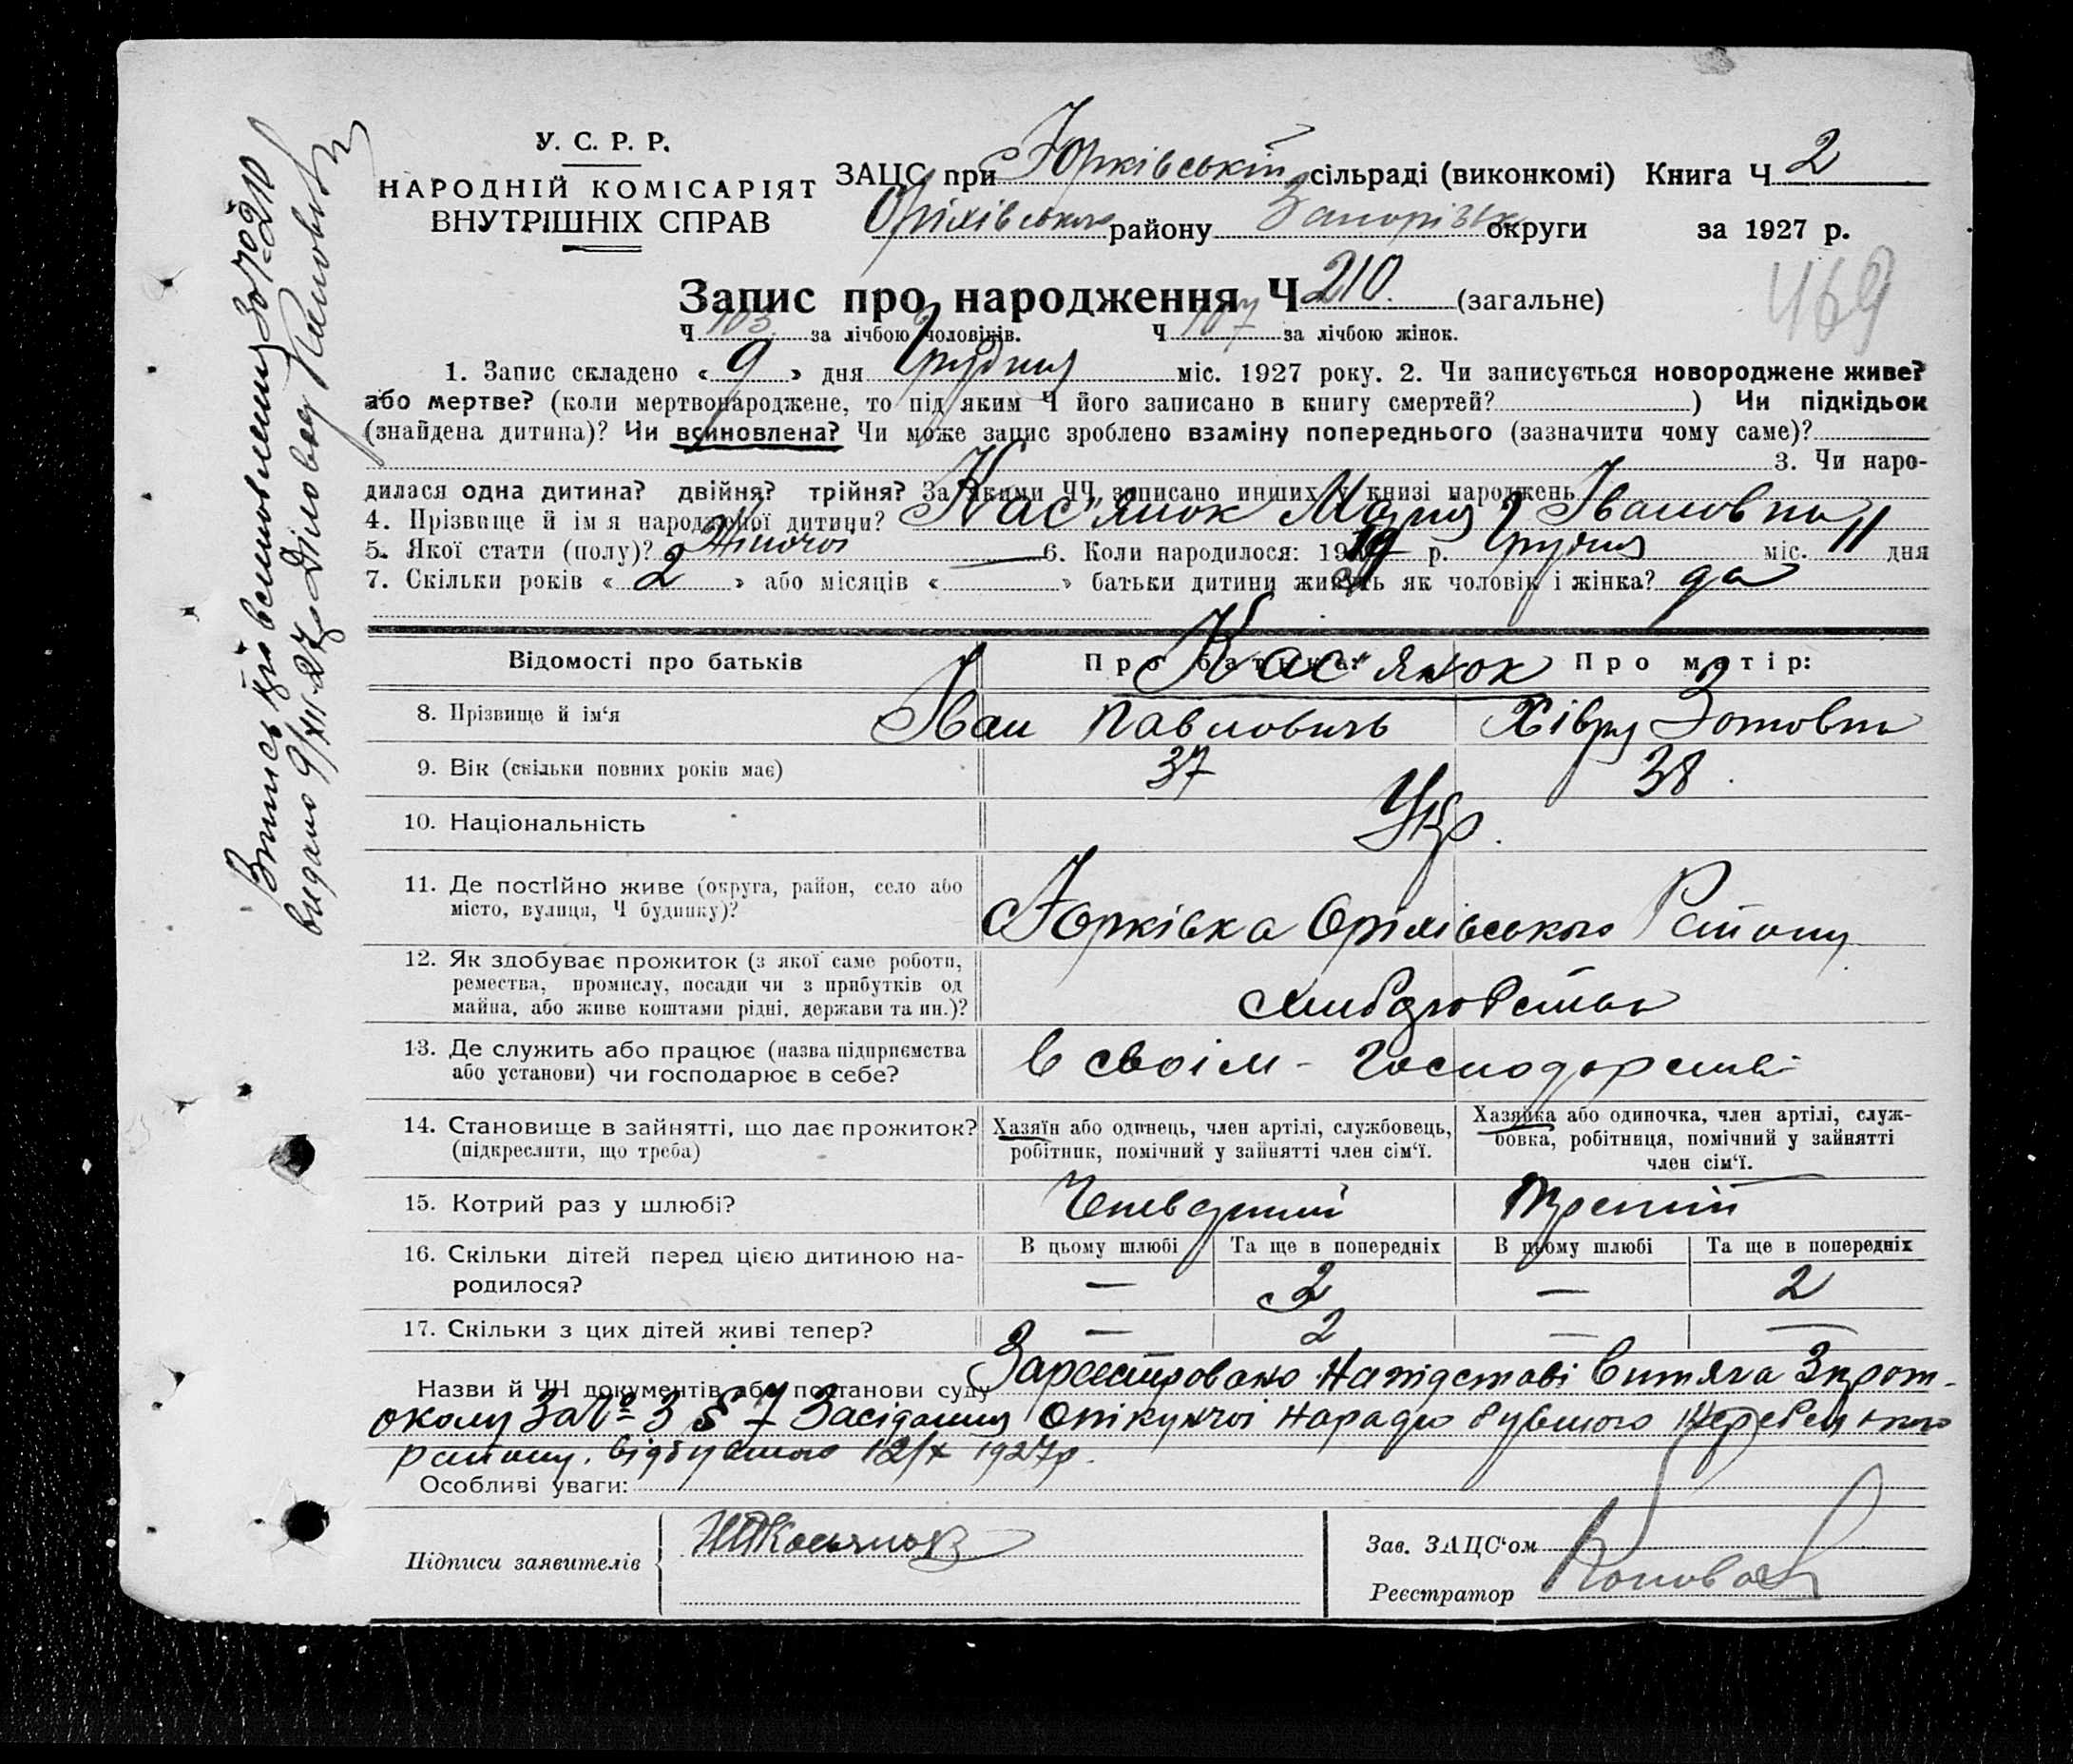 У. С. Р. Р.
НАРОДНІЙ КОМІСАРІЯТ
ВНУТРІШНІХ СПРАВ
ЗАЦС при Юрківській сільраді (виконкомі) Книга Ч 2
Оріхівського району Запорізьк округи за 1927 р.
469
Запис про народження Ч 210. (загальне)
Ч 103 за лічбою чоловіків. Ч 107 за лічбою жінок.
1. Запис складено « 9 » дня Грудня міс. 1927 року. 2. Чи записується новороджене живе?
або мертве? (коли мертвонароджене, то під яким Ч його записано в книгу смертей? ) Чи підкідьок
(знайдена дитина)? Чи всиновлена? Чи може запис зроблено взаміну попереднього (зазначити чому саме)?
3. Чи наро-
дилася одна дитина? двійня? трійня? За якими ЧЧ записано инших у книзі народжень
4. Прізвище й ім'я народженої дитини? Кас'янок Марія Івановна
5. Якої стати (полу)? Жіночої 6. Коли народилося: 19 р. Грудня міс. 11 дня
7. Скільки років « 2 » або місяців « » батьки дитини живуть як чоловік і жінка? да
Відомості про батьків Про батька: Про матір:
Кас'янок
8. Прізвище й ім'я Іван Павловичь Хівря Зотовна
9. Вік (скільки повних років має) 37 38
10. Національність Укр.
11. Де постійно живе (округа, район, село або
місто, вулиця, Ч будинку)?
Юрківка Оріхівського Району
12. Як здобуває прожиток (з якої саме роботи,
ремества, промислу, посади чи з прибутків од
майна, або живе коштами рідні, держави та ин.)?
13. Де служить або працює (назва підприємства
або установи) чи господарює в себе?
в своім - господарстві
14. Становище в зайнятті, що дає прожиток?
(підкреслити, що треба)
Хазяїн або одинець, член артілі, службовець,
робітник, помічний у зайнятті член сім'ї.
Хазяйка або одиночка, член артілі, служ-
бовка, робітниця, помічний у зайнятті
член сім'ї.
15. Котрий раз у шлюбі? Третий
16. Скільки дітей перед цією дитиною на-
родилося?
В цьому шлюбі Та ще в попередніх В цьому шлюбі Та ще в попередніх
— 2 — 2
17. Скільки з цих дітей живі тепер? — 2 — —
Назви й ЧЧ документів або постанови суду Зареєстровано на підставі витяга з прот-
околу за № 3 § 7 Засідання Опікунчої Наради бувшого
району, відбувшого 12/X 1927р.
Особливі уваги:
Підписи заявителів
Зав. ЗАЦС'ом
Реєстратор
Випись про всиновлення за № 210
видано 9/XII-27р Діловод